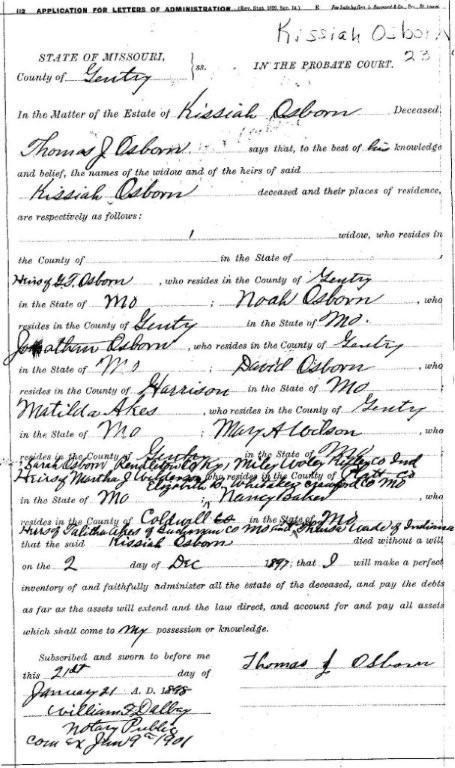 112 APPLICATION FOR LETTERS OF ADMINISTRATION.
Kissiah Osborn
23
STATE OF MISSOURI,
County of Gentry } ss. IN THE PROBATE COURT.
In the Matter of the Estate of Kissiah Osborn Deceased
Thomas J Osborn says that, to the best of his knowledge
and belief, the names of the widow and of the heirs of said
Kissiah Osborn deceased and their places of residence,
are respectively as follows:
widow, who resides in
the County of in the State of
Heirs of G.T. Osborn, who resides in the County of Gentry
in the State of Mo ; Noah Osborn, who
resides in the County of Gentry in the State of Mo.
Jonathan Osborn, who resides in the County of Gentry
in the State of Mo ; David Osborn, who
resides in the County of Harrison in the State of Mo ;
Matilda Akes, who resides in the County of Gentry
in the State of Mo ; Mary A Wilson, who
resides in the County of Gentry in the State of Mo
Sarah Osborn Pendleton Co Ky, Miley Ripley Co Ind
Heirs of Martha J who resides in the County of Platt Co
Elizabeth Crawford Co Mo
in the State of Mo ; Nancy Baker, who
resides in the County of Coldwell Co in the State of Mo
Heirs of Talitha Akes of Co Mo and Wade of Indiana
that the said Kissiah Osborn died without a will
on the 2 day of Dec 1897; that I will make a perfect
inventory of and faithfully administer all the estate of the deceased, and pay the debts
as far as the assets will extend and the law direct, and account for and pay all assets
which shall come to my possession or knowledge.
Subscribed and sworn to before me
this 21st day of
January 21 A. D. 1898
William F Dalbey
Notary Public
Com Ex Jan 9th 1901
Thomas J Osborn